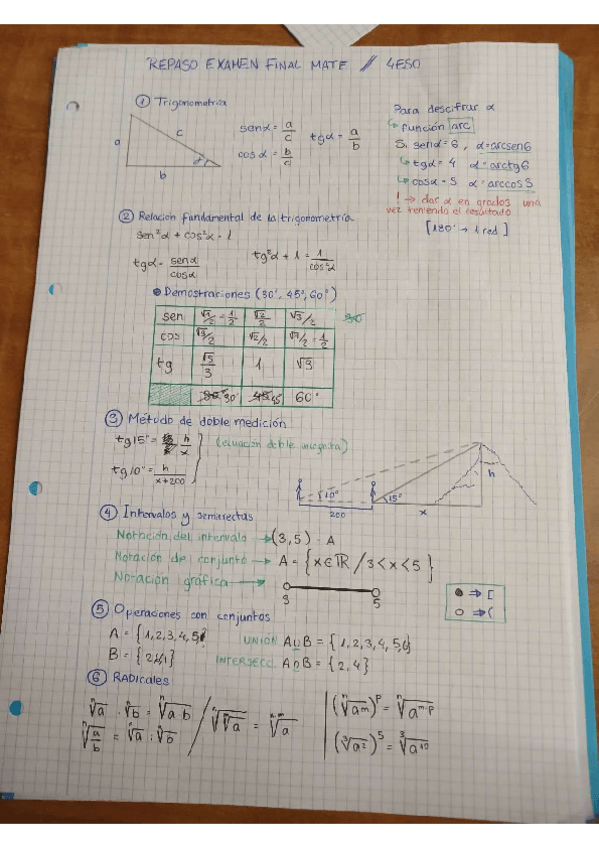 REPASO EXAMEN FINAL MATE // 4ESO
① Trigonometría
a
c
b
α
senα = a/c
cosα = b/c
tgα = a/b
Para descifrar α
↳ función arc
Si senα = 6, α = arcsen6
↳ tgα = 4 α = arctg6
↳ cosα = 5 α = arccos5
! → dar α en grados una
vez teniendo el resultado
[180° → 1 rad]
② Relación fundamental de la trigonometría
sen²α + cos²α = 1
tgα = senα/cosα
tg²α + 1 = 1/cos²α
Demostraciones (30°, 45°, 60°)
sen √1/2 = 1/2 √2/2 √3/2
cos √3/2 √2/2 √1/2 = 1/2
tg √3/3 1 √3
30 45 60°
③ Método de doble medición
tg15° = h/x
tg10° = h/x+200
(ecuación doble incógnita)
10°
15°
h
200
x
④ Intervalos y semirectas
Notación del intervalo → (3,5) = A
Notación de conjunto → A = {x∈ℝ / 3<x<5}
Notación gráfica →
3
5
● ⇒ [
○ ⇒ (
⑤ Operaciones con conjuntos
A = {1,2,3,4,5}
UNIÓN A∪B = {1,2,3,4,5,6}
INTERSECC. A∩B = {2,4}
⑥ RADicales
ⁿ√a · ⁿ√b = ⁿ√a·b
ⁿ√a/b = ⁿ√a : ⁿ√b
ⁿ√ᵐ√a = ⁿ·ᵐ√a
(ⁿ√aᵐ)ᵖ = ⁿ√aᵐ·ᵖ
(³√a²)⁵ = ³√a¹⁰